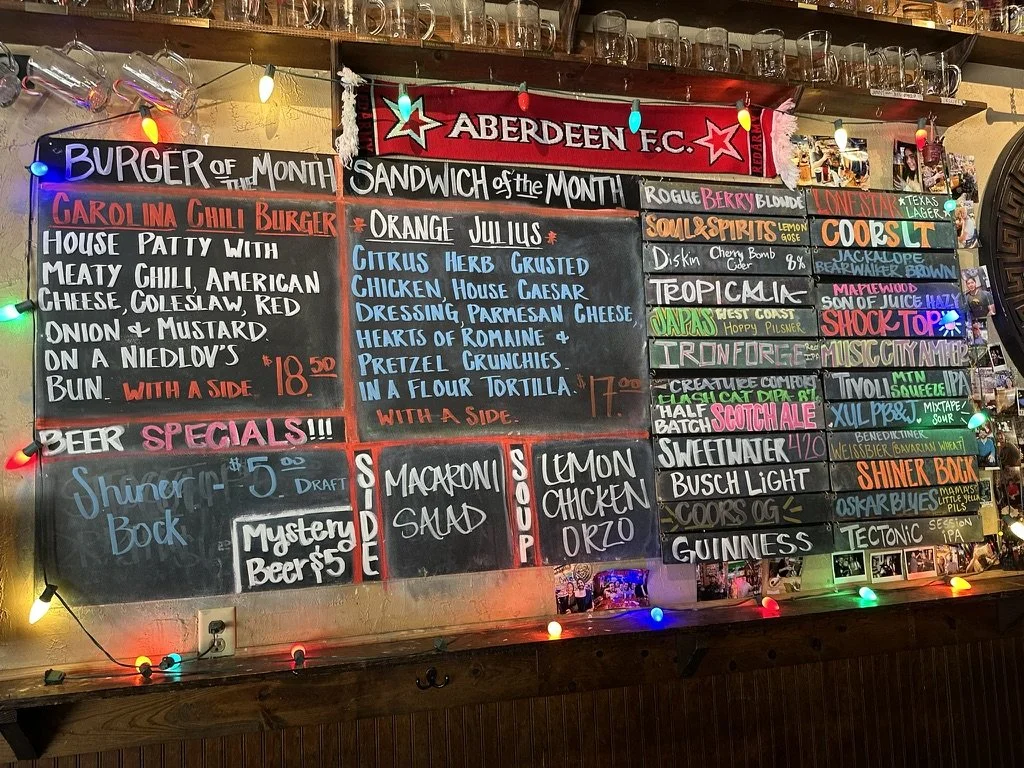 ABERDEEN F.C.
BURGER OF THE MONTH
CAROLINA CHILI BURGER
HOUSE PATTY WITH
MEATY CHILI, AMERICAN
CHEESE, COLESLAW, RED
ONION & MUSTARD
ON A NIEDLOV'S
BUN. WITH A SIDE $18.50
SANDWICH of the MONTH
* ORANGE JULIUS *
CITRUS HERB CRUSTED
CHICKEN, HOUSE CAESAR
DRESSING, PARMESAN CHEESE,
HEARTS OF ROMAINE &
PRETZEL CRUNCHIES.
IN A FLOUR TORTILLA. $17.00
WITH A SIDE.
BEER SPECIALS!!!
Shiner - $5.00 DRAFT
Bock
Mystery
Beer $5
SIDE
MACARONI
SALAD
SOUP
LEMON
CHICKEN
ORZO
ROGUE BERRY BLONDE
SOUL & SPIRITS LEMON GOSE
Diskin Cherry Bomb Cider 8%
TROPICALIA
JAPAS WEST COAST HOPPY PILSNER
IRON FORGE
CREATURE COMFORTS
CLASH CAT DIPA 8%
HALF BATCH SCOTCH ALE
SWEETWATER 420
BUSCH LIGHT
COORS OG
GUINNESS
LONESTAR * TEXAS LAGER *
COORS LT
JACKALOPE
BEARWALKER BROWN
MAPLEWOOD
SON OF JUICE HAZY
SHOCK TOP
MUSIC CITY AMBER
TIVOLI MTN SQUEEZE IPA
XUL PB&J. MIXTAPE/ SOUR
BENEDIKTINER
WEISSBIER (BAVARIAN WHEAT)
SHINER BOCK
OSKAR BLUES MAMA'S LITTLE YELLA PILS
TECTONIC SESSION IPA